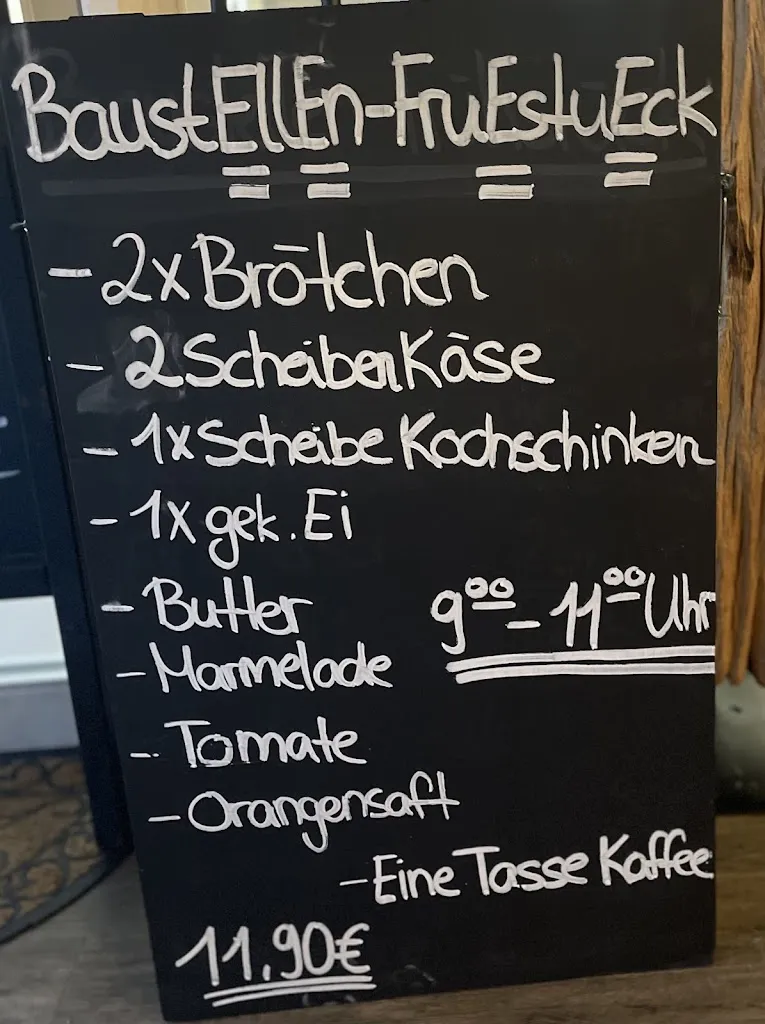 BaustEllEn-FruEstuEck
- 2x Brötchen
- 2 Scheiben Käse
- 1x Scheibe Kochschinken
- 1x gek. Ei
- Butter
9⁰⁰ - 11⁰⁰ Uhr
- Marmelade
- Tomate
- Orangensaft
- Eine Tasse Kaffee
11,90€